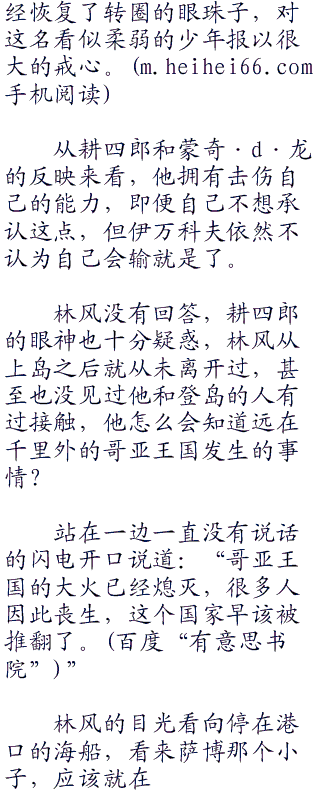 经恢复了转圈的眼珠子，对
这名看似柔弱的少年报以很
大的戒心。(m.heihei66.com
手机阅读)
从耕四郎和蒙奇·d·龙
的反映来看，他拥有击伤自
己的能力，即便自己不想承
认这点，但伊万科夫依然不
认为自己会输就是了。
林风没有回答，耕四郎
的眼神也十分疑惑，林风从
上岛之后就从未离开过，甚
至也没见过他和登岛的人有
过接触，他怎么会知道远在
千里外的哥亚王国发生的事
情？
站在一边一直没有说话
的闪电开口说道：“哥亚王
国的大火已经熄灭，很多人
因此丧生，这个国家早该被
推翻了。(百度“有意思书
院”)”
林风的目光看向停在港
口的海船，看来萨博那个小
子，应该就在